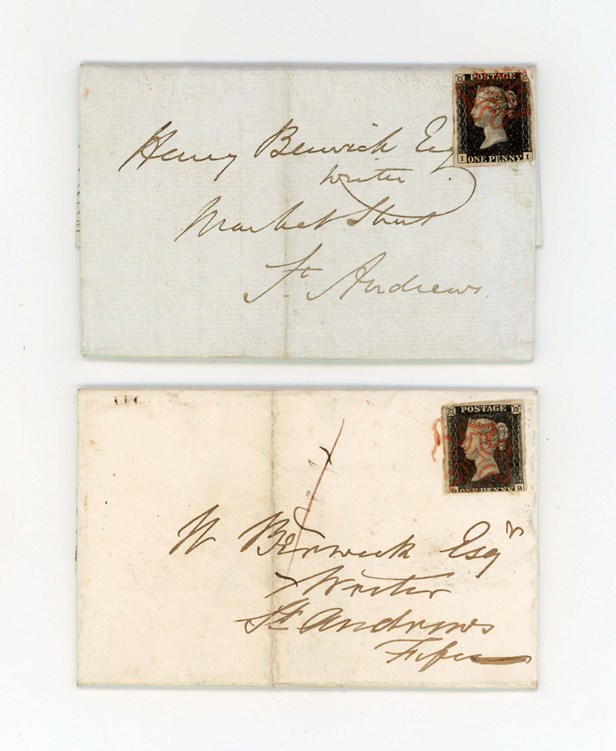 POSTAGE
I ONE PENNY I
Henry Berwick Esq
Writer
Market Street
St. Andrews.
POSTAGE
ONE PENNY
W Berwick Esqr
Writer
St Andrews
Fife